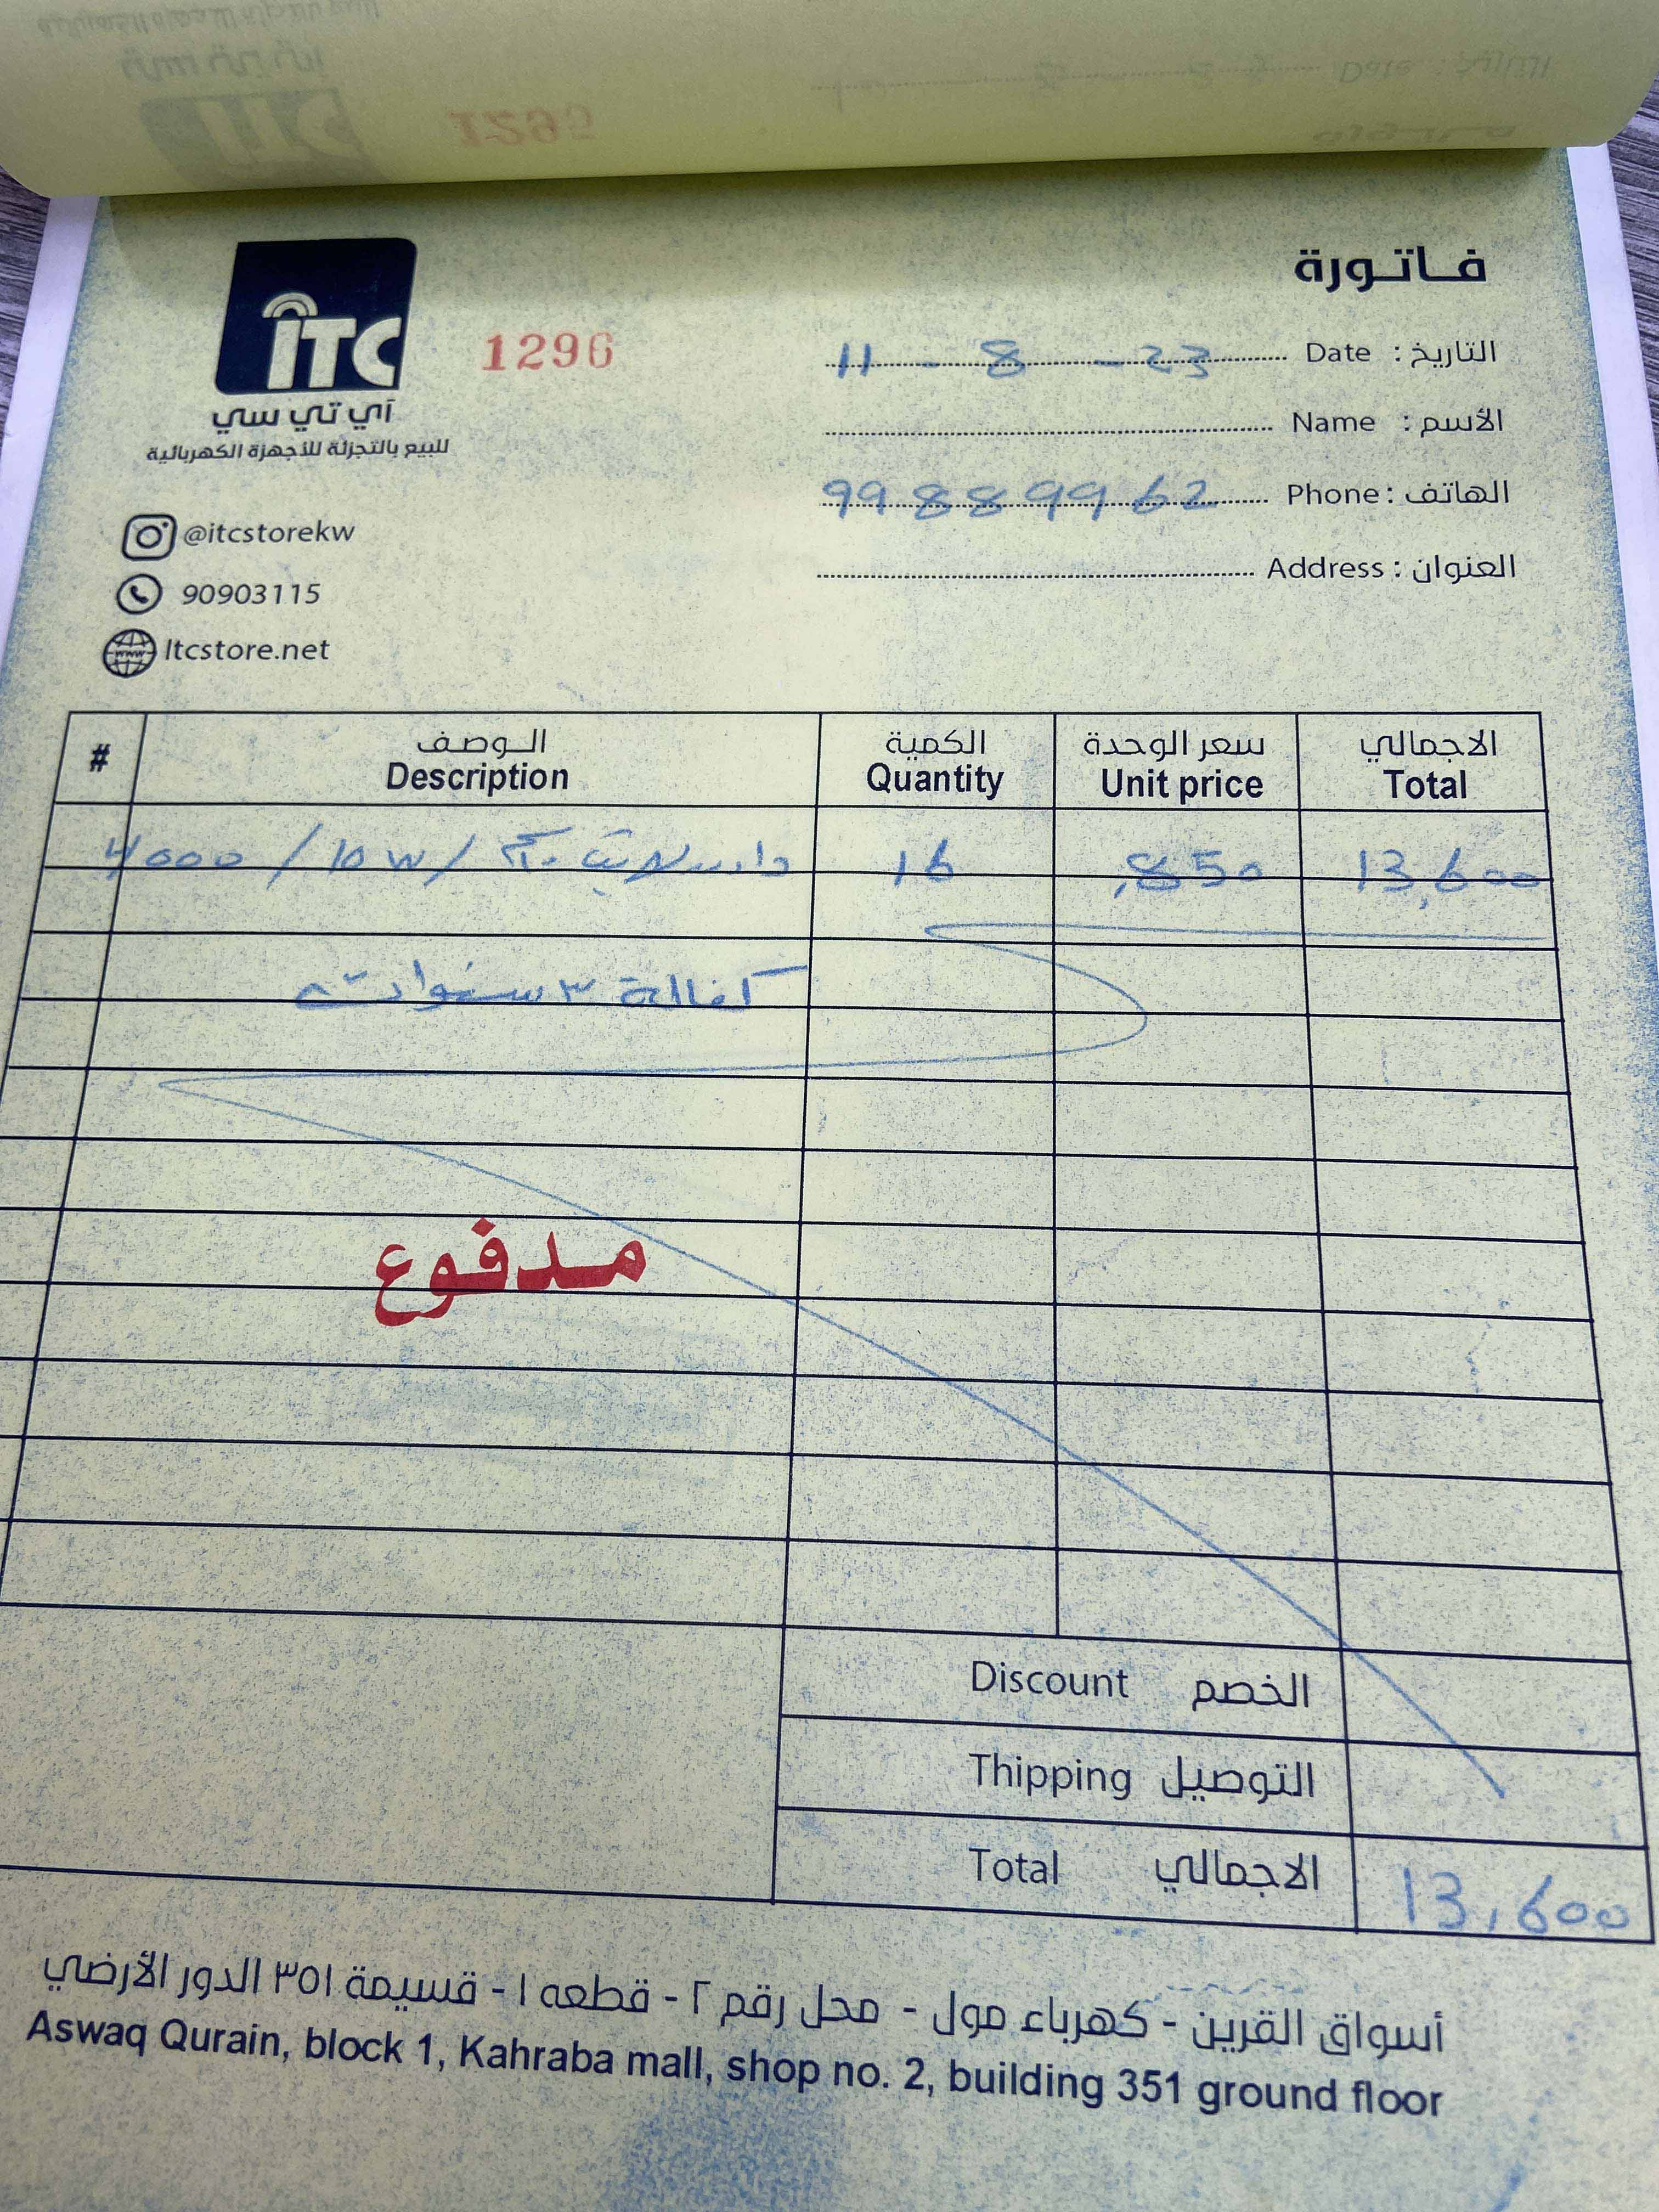 فاتورة
ITC
آي تي سي
للبيع بالتجزئة للأجهزة الكهربائية
1296
التاريخ : Date 11 - 8 - 23
الأسم : Name
الهاتف : Phone 99889962
العنوان : Address
@itcstorekw
90903115
Itcstore.net
# الوصف الكمية سعر الوحدة الاجمالي
Description Quantity Unit price Total
4000 / 10 W / داون لايت 16 ,850 13,600
كفالة ٣ سنوات
مدفوع
Discount الخصم
Thipping التوصيل
Total الاجمالي 13,600
أسواق القرين - كهرباء مول - محل رقم ٢ - قطعه ١ - قسيمة ٣٥١ الدور الأرضي
Aswaq Qurain, block 1, Kahraba mall, shop no. 2, building 351 ground floor